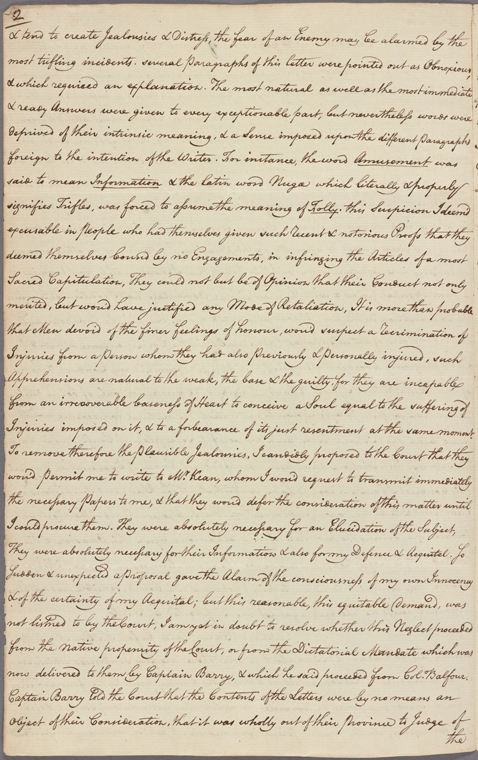 2
& tend to create Jealousies & Distress, the fear of an Enemy may be alarmed by the
most trifling incidents. Several Paragraphs of this letter were pointed out as Obnoxious
& which required an explanation. The most natural as well as the most immediate
& ready Answers were given to every exceptionable part, but nevertheless words were
deprived of their intrinsic meaning, & a Sense imposed upon the different Paragraphs
foreign to the intention of the Writer. For instance, the word Amusement was
said to mean Information & the latin word Nuga which literally & properly
signifies Trifles, was forced to assume the meaning of Folly. this Suspicion I deem'd
excusable in People who had themselves given such recent & notorious Proofs that they
deemed themselves bound by no Engagements, in infringing the Articles of a most
Sacred Capitulation, They could not but be of Opinion that their Conduct not only
merited, but would have justified any Mode of Retaliation, It is more than probable
that Men devoid of the finer feelings of honour, would suspect a Recrimination of
Injuries from a Person whom they had also Previously & personally injured, such
Apprehensions are natural to the weak, the base & the guilty, for they are incapable
from an irrecoverable baseness of Heart to conceive a Soul equal to the suffering of
Injuries imposed on it, & to a forbearance of its just resentment at the same moment
To remove therefore the Plausible Jealousies, I candidly proposed to the Court that they
would Permit me to write to Mr. Kean, whom I would request to transmit immediately
the necessary Papers to me, & that they would defer the consideration of this matter until
I could procure them. They were absolutely necessary for an Elucidation of the Subject,
They were absolutely necessary for their Information & also for my Defence & Acquital. So
Sudden & unexpected a proposal gave the Alarm of the consciousness of my own Innocency
& of the certainty of my Acquital; but this reasonable, this equitable Demand, was
not listned to by the Court, I am yet in doubt to resolve whether this Neglect proceeded
from the native propensity of the Court, or from the Dictatorial Mandate which was
now delivered to them by Captain Barry, & which he said proceeded from Col. Balfour.
Captain Barry told the Court that the Contents of the Letters were by no means an
object of their Consideration, that it was wholly out of their Province to Judge of
the